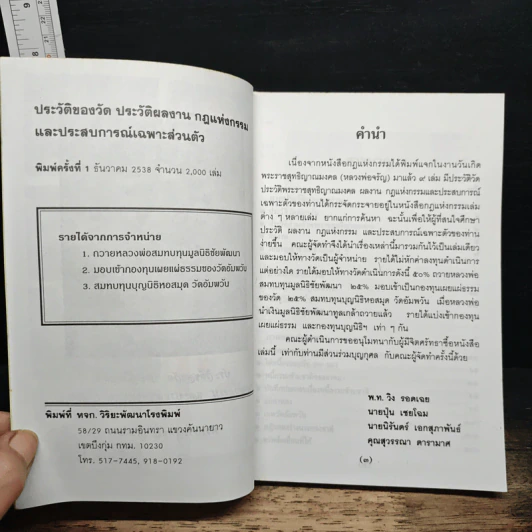 ประวัติของวัด ประวัติผลงาน กฎแห่งกรรม
และประสบการณ์เฉพาะส่วนตัว
พิมพ์ครั้งที่ 1 ธันวาคม 2538 จำนวน 2,000 เล่ม
รายได้จากการจำหน่าย
1. ถวายหลวงพ่อสมทบทุนมูลนิธิชัยพัฒนา
2. มอบเข้ากองทุนเผยแผ่ธรรมของวัดอัมพวัน
3. สมทบทุนบุญนิธิหอสมุด วัดอัมพวัน
พิมพ์ที่ หจก. วิริยะพัฒนาโรงพิมพ์
58/29 ถนนรามอินทรา แขวงคันนายาว
เขตบึงกุ่ม กทม. 10230
โทร. 517-7445, 918-0192
คำนำ
เนื่องจากหนังสือกฎแห่งกรรมได้พิมพ์แจกในงานวันเกิด
พระราชสุทธิญาณมงคล (หลวงพ่อจรัญ) มาแล้ว ๙ เล่ม มีประวัติวัด
ประวัติพระราชสุทธิญาณมงคล ผลงาน กฎแห่งกรรมและประสบการณ์
เฉพาะตัวของท่านได้กระจัดกระจายอยู่ในหนังสือกฎแห่งกรรมเล่ม
ต่าง ๆ หลายเล่ม ยากแก่การค้นหา ฉะนั้นเพื่อให้ผู้ที่สนใจศึกษา
ประวัติ ผลงาน กฎแห่งกรรม และประสบการณ์เฉพาะตัวของท่าน
ง่ายขึ้น คณะผู้จัดทำจึงได้นำเรื่องเหล่านี้มารวมกันไว้เป็นเล่มเดียว
และมอบให้ทางวัดเป็นผู้จำหน่าย รายได้ไม่หักค่าลงทุนดำเนินการ
แต่อย่างใด รายได้มอบให้ทางวัดดำเนินการดังนี้ ๕๐% ถวายหลวงพ่อ
สมทบทุนมูลนิธิชัยพัฒนา ๒๕% มอบเข้าเป็นกองทุนเผยแผ่ธรรม
ของวัด ๒๕% สมทบทุนบุญนิธิหอสมุด วัดอัมพวัน เมื่อหลวงพ่อ
นำเงินมูลนิธิชัยพัฒนาทูลเกล้าถวายแล้ว รายได้แบ่งเข้ากองทุน
เผยแผ่ธรรม และกองทุนบุญนิธิฯ เท่า ๆ กัน
คณะผู้ดำเนินการขออนุโมทนากับผู้มีจิตศรัทธาซื้อหนังสือ
เล่มนี้ เท่ากับท่านมีส่วนร่วมบุญกุศล กับคณะผู้จัดทำครั้งนี้ด้วย
พ.ท. วิง รอดเฉย
นายปุ่น เชยโฉม
นายนิรันดร์ เอกสุภาพันธ์
คุณสุวรรณา ดารามาศ
(๓)